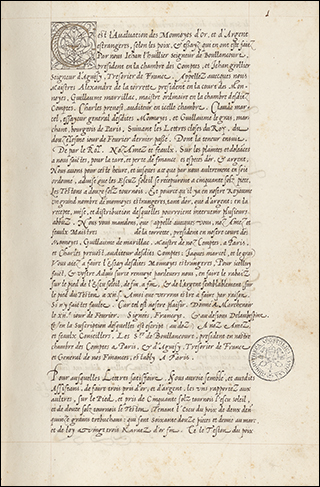 1
C'est l'Avaluation des Monnoyes d'or, et d'Argent
estrangeres, selon les poix, & essays que en ont esté faict
Par nous Jehan Lhuillier seigneur de Boullancourt,
president en la chambre des Comptes, et Jehan grollier
Seigneur d'Aguysy, Tresorier de France. Appellez avecques nous
Maistres Alexandre de la tourette, president en la cours des Mon-
noyes, Guillaume marillac, maistre ordinaire en la chambre desdictz
Comptes, Charles prevost, auditeur en icelle chambre. Claude mar-
cel, essayeur general desdictes Monnoyes, et Guillaume le gras, mar-
chant, bourgeois de Paris, Suivant les Lettres closes du Roy, du
douziesme jour de Fevrier dernier passé. Dont la teneur ensuit.
De par le Roy. Noz Amez et feaulx. Sur les plaintes et doleances
a nous faictes, pour la tare, et perte de finance es especes d'or, & d'argent,
Nous avons pour ceste heure, et jusques a ce que par nous autrement en soit
ordonné, advisé que les Escuz soleil se mettront a cinquante solz piece,
Les Testons a douze solz tournois. Et pource qu'il y a en nostre Royaume
un grand nombre de monnoyes estrangeres, tant d'or, que d'argent: en la
recepte, mise, et distribution desquelles pourroient intervenir plusieurs
abbuz. Nous vous mandons, que appellé avecques vous, noz Amez et
feaulx Maistres de la tourette, president en nostre cours des
Monnoyes, Guillaume de marillac, Maistre de noz Comptes, a Paris,
et Charles prevost, auditeur desdictz Comptes, Jaques marcel, et le gras,
Vous aiez a faire l'essay desdictes Monnoyes estrangeres. Pour icelluy
faict, et vostre Advis sur ce renvoyé pardevers nous, en faire le rabaiz
sur le pied de l'Escu soleil, de son a son, & de l'argent semblablement sur
le pied du Teston a xii s. Ainsi que verrez estre a faire par raison.
Si n'y faictes faulte. Car tel est nostre plaisir. Donné A
le xii.e jour de Fevrier. Signees, Francoys. & au desoubz
& en la Suscription desquelles est escript, au dos A noz Amez,
et feaulx Conseillers, Les Srs de Boullancourt, president en nostre
chambre des Comptes a Paris, & d'Aguysy, Tresorier de France,
et General de noz Finances, estably a Paris.
Pour ausquelles Lettres satisfaire, Nous avons semblé, et
Assistans, de faire trois pied d'or, et d'argent, les uns rapportez aux
aultres, sur le Pied, et pris de Cinquante solz tournois l'Escu soleil,
et de douze solz tournois le Teston. Tenant l'Escu du poix de deux den
quinze grains trebuchans, qui sont soixante douze pieces et demie au marc,
et de loy a vingt trois Karatz d'or fin. Et le Teston du poix